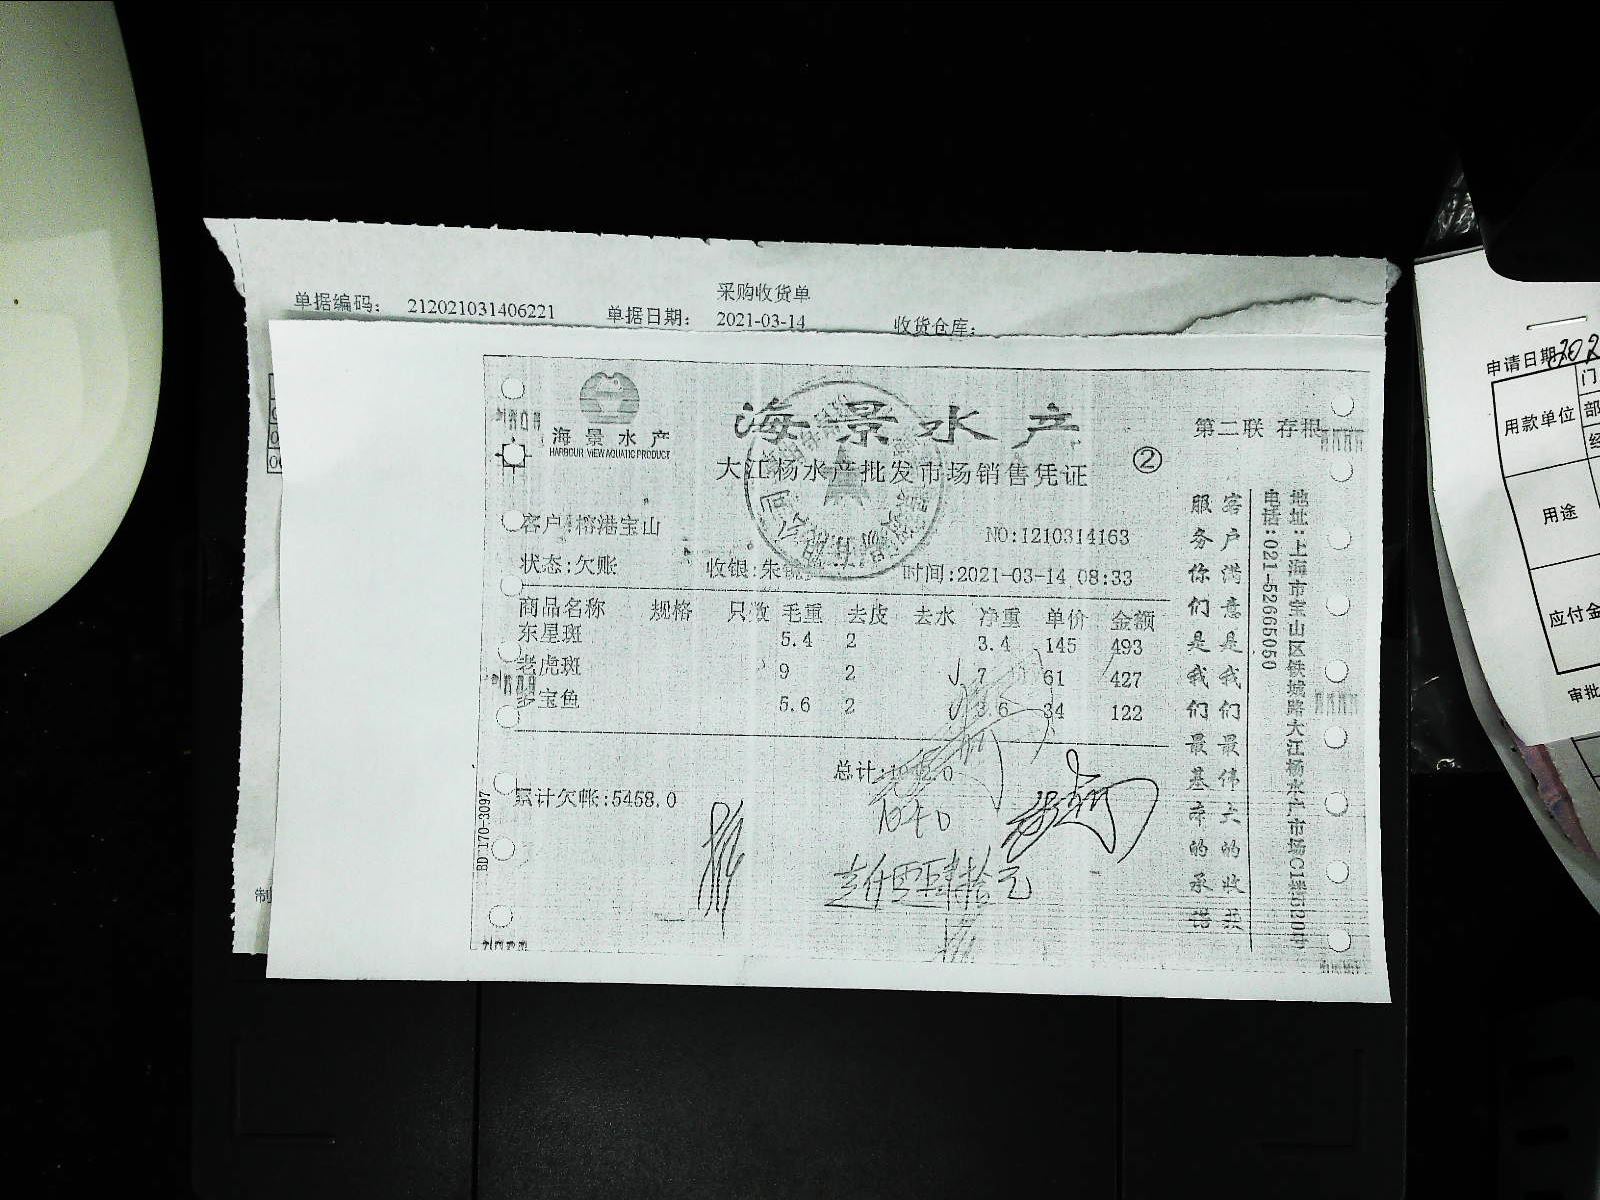 采购收货单
单据编码: 212021031406221 单据日期: 2021-03-14 收货仓库:
海景水产
HARBOUR VIEW AQUATIC PRODUCT
海景水产
第二联 存根
大江杨水产批发市场销售凭证 ②
客户:榕港宝山 NO:1210314163
状态:欠账 收银:朱 时间:2021-03-14 08:33
商品名称 规格 只数 毛重 去皮 去水 净重 单价 金额
东星斑 5.4 2 3.4 145 493
老虎斑 9 2 7 61 427
宝鱼 5.6 2 3.6 34 122
总计:1042.0
累计欠帐:5458.0
1040
壹仟零肆拾元
BD 170-3097
客户满意是我们最伟大的收获
服务你们是我们最基本的承诺
地址:上海市宝山区铁城路大江杨水产市场C1楼
电话:021-52665050
制
申请日期 202
用款单位
门
部
经
用途
应付金
审批